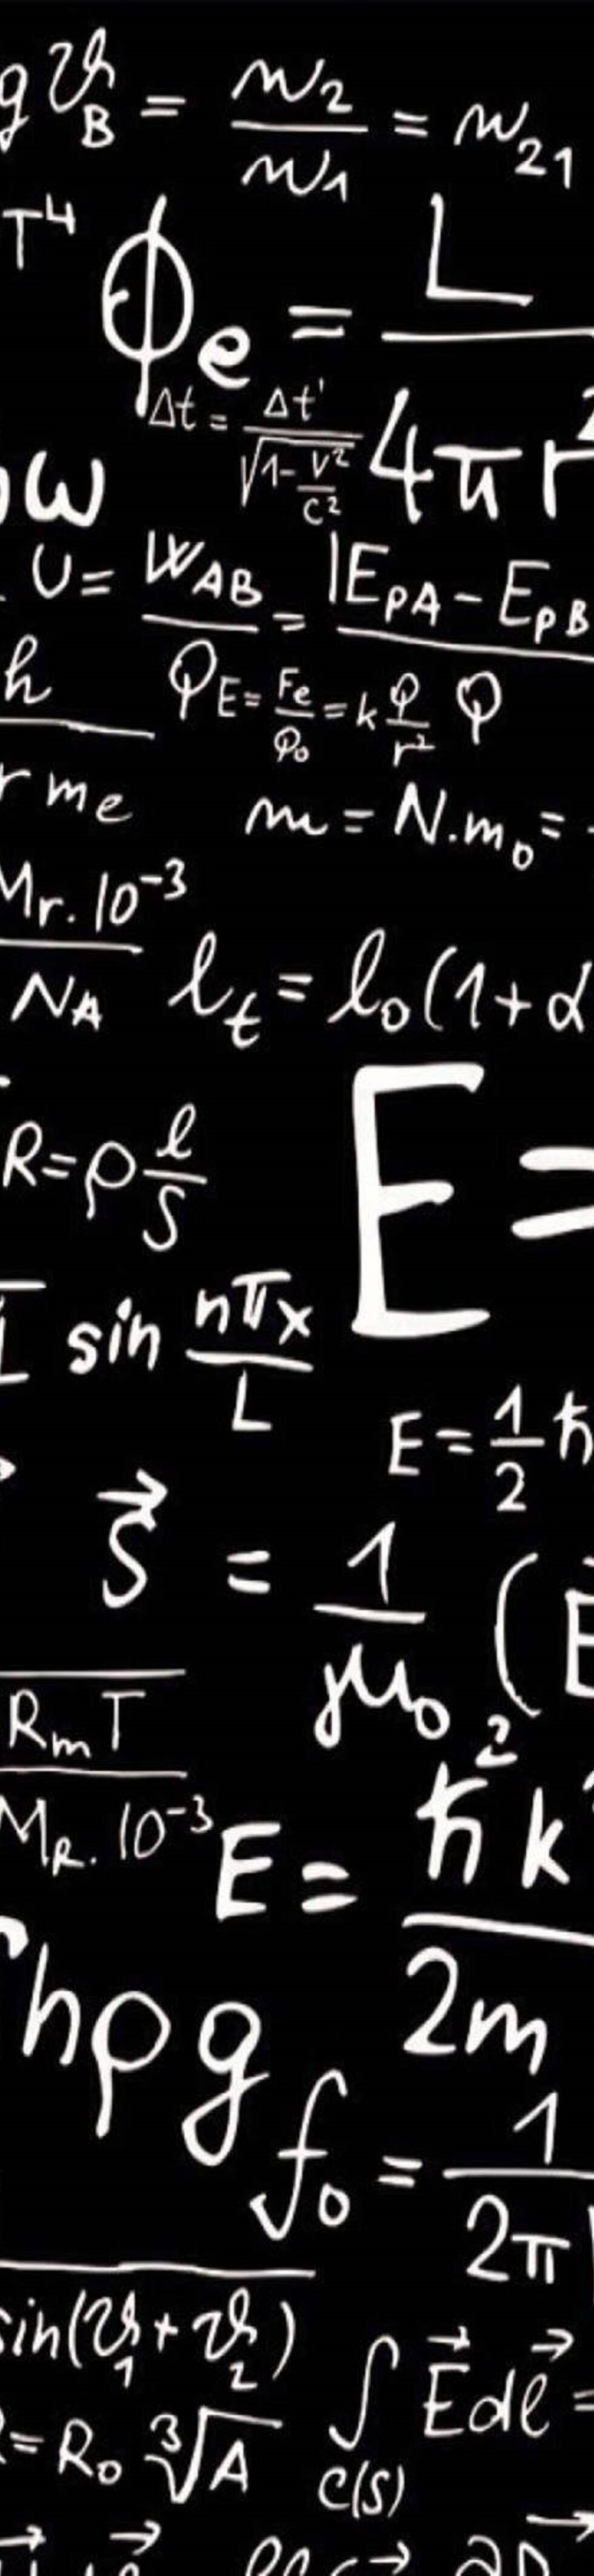 gϑ_B = n₂/n₁ = n₂₁
T⁴
ϕₑ = L/4πr²
Δt = Δt'/√(1-v²/c²)
ω
U = W_AB/Q = |E_PA - E_PB/Q
h/r mₑ
E = Fₑ/Q₀ = k Q/r²
m = N.m₀ =
Mr.10⁻³/N_A
ℓ_t = ℓ₀(1+α
R = ρ ℓ/S
E =
sin nπx/L
E = 1/2 ħ
S⃗ = 1/μ₀ (E
R_m T/M_R.10⁻³
E = ħ²k²/2m
hρg
f₀ = 1/2π
sin(ϑ₁+ϑ₂)
∫ E⃗dℓ⃗ =
C(S)
= R₀ ∛A